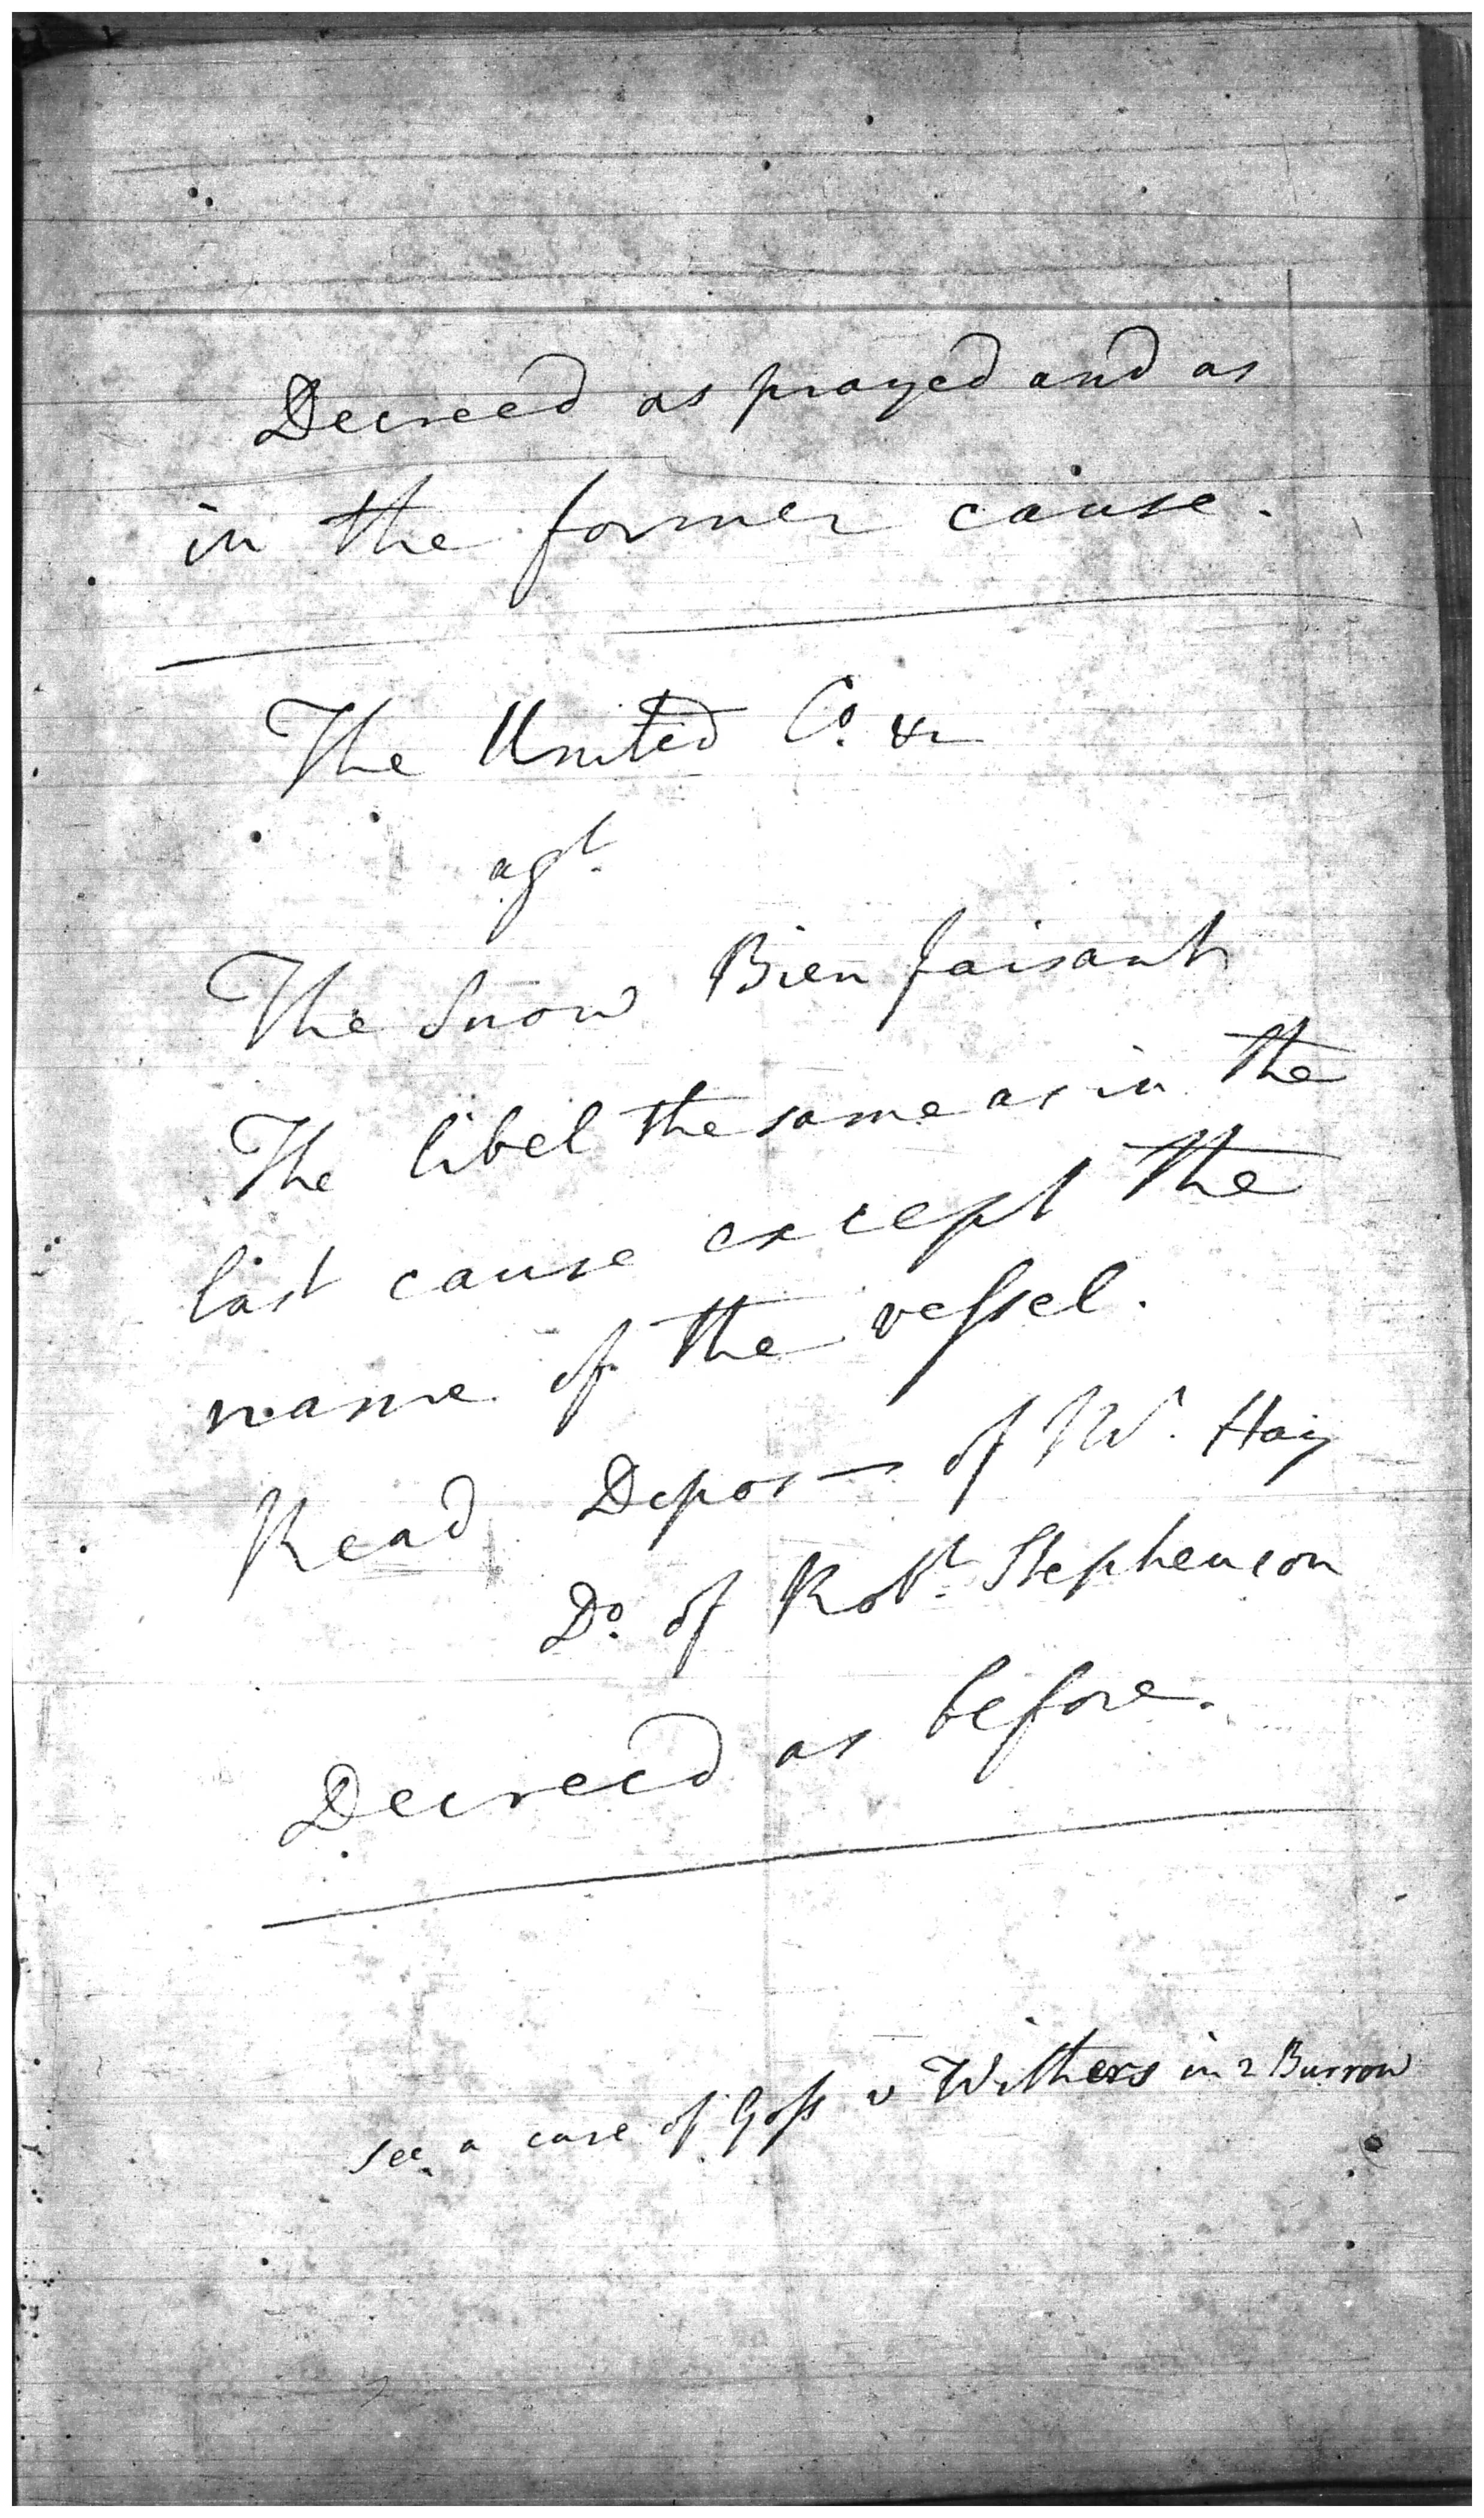 Decreed as prayed and as
in the former cause.
The United Co. &c
agt.
The Snow Bien faisant
The libel the same as in the
last cause except the
name of the vessel.
Read Depos— of W. Hay
Do. of Robt. Stephenson
Decreed as before.
see a case of Goss v Withers in 2 Burrow